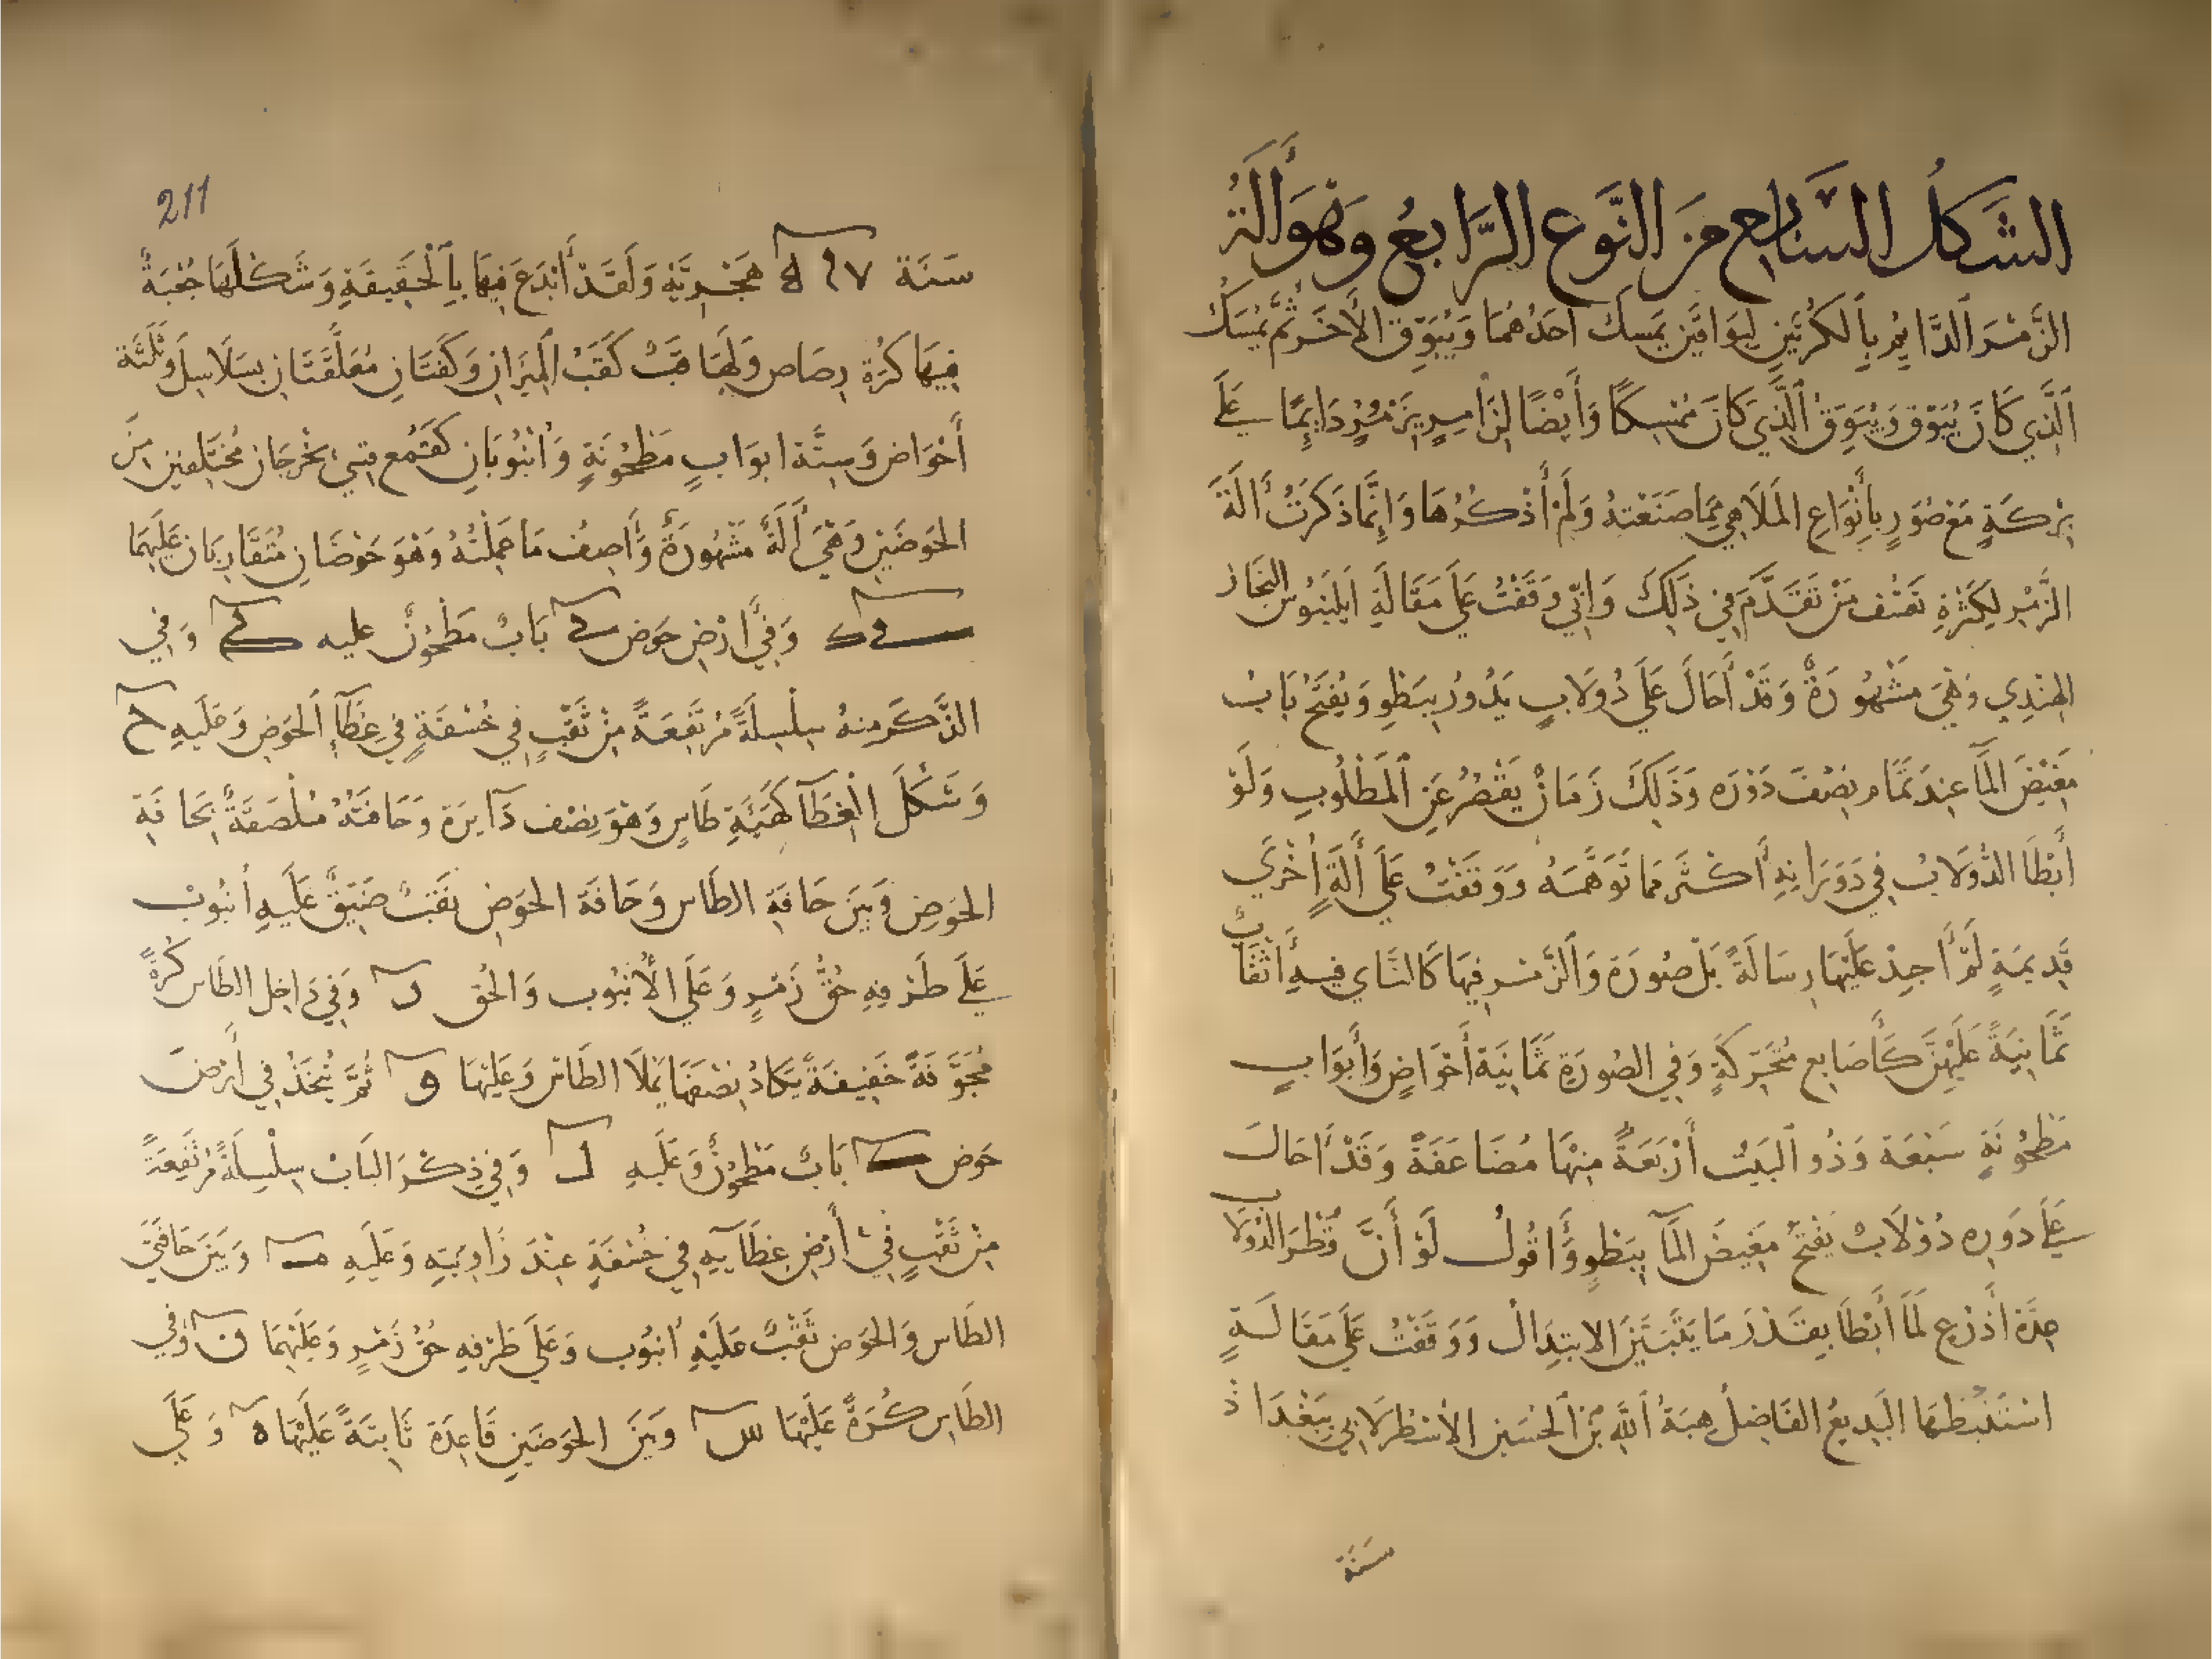 الشَكلُ السَّابع مِنَ النَّوع الرَّابعُ وَهْوَ أَلَةُ
الزَّمْرِ الدَّايِمُ بِالكُرَتَينِ لِبَوَاقَيْنِ يَمسِكُ أحَدُهُمَا وَيُبَوِّق الأخَر ثُمَّ يُمسَكُ
الَّذِي كَانَ يُبَوّق وَيُبَوِّقُ الَّذِي كَانَ مُمْسِكًا وَأَيْضًا لِزَامِرٍ يَزْمُرُ دَايِمًا عَلَى
بِرْكَةٍ مَعَ صُوَرٍ بِأَنْوَاعِ المَلَاهِي مِمَّا صَنَعْتهُ وَلَمْ أَذْكُرُهَا وَإِنَّمَا ذَكَرْتُ أَلَةَ
الزَّمْرِ لِكَثْرَةِ تَعَنُّف مَنْ تَقَدَّمَ فِي ذَلِكَ وَإِنِّي وَقَفْتُ عَلَى مَقَالَةِ ابُلِنْيُوس النَجَّار
الهِنْدِي وَهْيَ مَشْهُورَةٌ وَقَدْ أَحَالَ عَلَى دُولَابٍ يَدُورُ بِبَطْوٍ وَيُفْتَحُ بَابُ
مَغِيْضَ المَآ عِندَ تَمَّام نِصْفَ دَوْرَه وَذَلِكَ زَمَانٌ يَقْصُرُ عَنِ المَطْلُوبِ وَلَوْ
أَبْطَا الدُّولَابُ فِي دَوَرَانِهِ أَكْثَر مَمَا تَوَهَّمَهُ وَوَقَفْتُ عَلَى أَلَةٍ أُخْرَي
قَدِيمَةٍ لَمْ أَجِدْ عَلَيْهَا رِسَالَةً بَلْ صُورَة وَالزَّمْر فِيهَا كَالنَّاي فِيهِ أَثْقَابٌ
ثَمَانِيَةً عَلَيْهِنَّ كَأَصَابِع مُتَحَرِّكَةٍ وَفِي الصُورَةِ ثَمَانِيَة أَحْوَاضٍ وَأَبْوَابٍ
مَطْحُونَةٍ سَبْعَة وَذُو البَيْت أَرْبَعَةً مِنْهَا مُضَاعَفَةً وَقَدْ أَحَالَ
عَلَى دَوَرِه دُوْلَابٌ يَفْتَحُ مَغِيضَ المَآ بِبَطْوٍ وَأَقُولُ لَوْ أَنَّ قُطْرَ الدُّولَابِ
عِدَّة أَذْرُع لَمَا أَبْطَا بِقَدْرَ مَا يَتَبَيَّنَ الابتِدَالُ وَوَقَفْتُ عَلَى مَقَالَةٍ
اسْتَنْبَطَهَا البَدِيعُ الفَاضِلُ هِبَةُ اللَّهِ بْنَ الحُسَينِ الاسْطُرلَابِي بِبَغْدَاذ
سَنَة
211
سَنَة ٥١٧ هَجْرِيَّةِ وَلَقَدْ أَبْدَعَ فِيهَا بِالحَقِيقَةِ وَشَكْلُهَا جُعْبَةٌ
فِيهَا كُرَة رِصَاص وَلَهَا قَبٌّ كَقَبِّ المِيزَانِ وَكَفَّتَانِ مُعَلَّقَتَانِ بِسَلَاسِلَ وَثَلَثَة
أَحْوَاض وَسِتَّة ابوَابٍ مَطْحُونَةٍ وَانْبُوبَانِ كَقَمْع فِي يَخْرجَان مُختَلِفِين مِنَ
الحَوضَينِ وَهْيَ أَلَةٌ مَشْهُورَةٌ وَأَصِفُ مَا عَمِلْتُهُ وَهْوَ حَوْضَانِ مُتَقَارِبَانِ عَلَيهِمَا
وَفِي أَرْضِ حَوض بَابٌ مَطْحُونٌ عليه وَفِي
الذَّكَرِ مِنهُ سِلْسِلَةً مُرْتَفِعَةً مِنْ ثَقْبٍ فِي خُسْفَةٍ فِي غِطَآءِ الحَوْضِ وَعَلَيهِ ح
وَشَكْل الغِطَآ كَهَيْئَةِ طَاسٍ وَهْوَ نِصْف دَآيِرَة وَحَافَتُهُ مُلْصَقَةٌ بِحَافَةِ
الحَوضِ وَبَينَ حَافَةِ الطَاسِ وَحَافَة الحَوْضِ ثقْبٌ ضَيِّقٌ عَلَيهِ أنبُوبٌ
عَلَى طَرْفِهِ حُقُّ زَمْرٍ وَعَلَى الأُنْبُوب وَالحُقّ د وَفِي دَاخِل الطَاس كُرَةٌ
مُجَوَّفَةً خَفِيفَةً يَكَادُ نِصفهَا يَمْلَا الطَاسَ وَعَلَيْهَا و ثُمَّ يُتَّخَذُ فِي أَرْضَ
حَوض بَابٌ مَطْحُونٌ وَعَلَيهِ ل وَفِي ذِكْرَ البَاب سِلْسِلَةً مُرْتَفِعَةً
مِنْ ثَقْبٍ فِي أَرْض غِطَآيِهِ فِي خُسْفَةٍ عِنْدَ زَاوِيَتِهِ وَعَلَيهِ م وَبَيْنَ حَافَتَي
الطَاسِ وَالحَوض ثَقْبٌ عَلَيْهِ انبُوب وَعَلَى طَرْفِهِ حُقُّ زَمْرٍ وَعَلَيْهِمَا ن وَفِي
الطَاسِ كُرَةٌ عَلَيْهَا س وَبَيْنَ الحَوضَينِ قَاعِدَة ثَابِتَةً عَلَيْهَا ه وَعَلَى